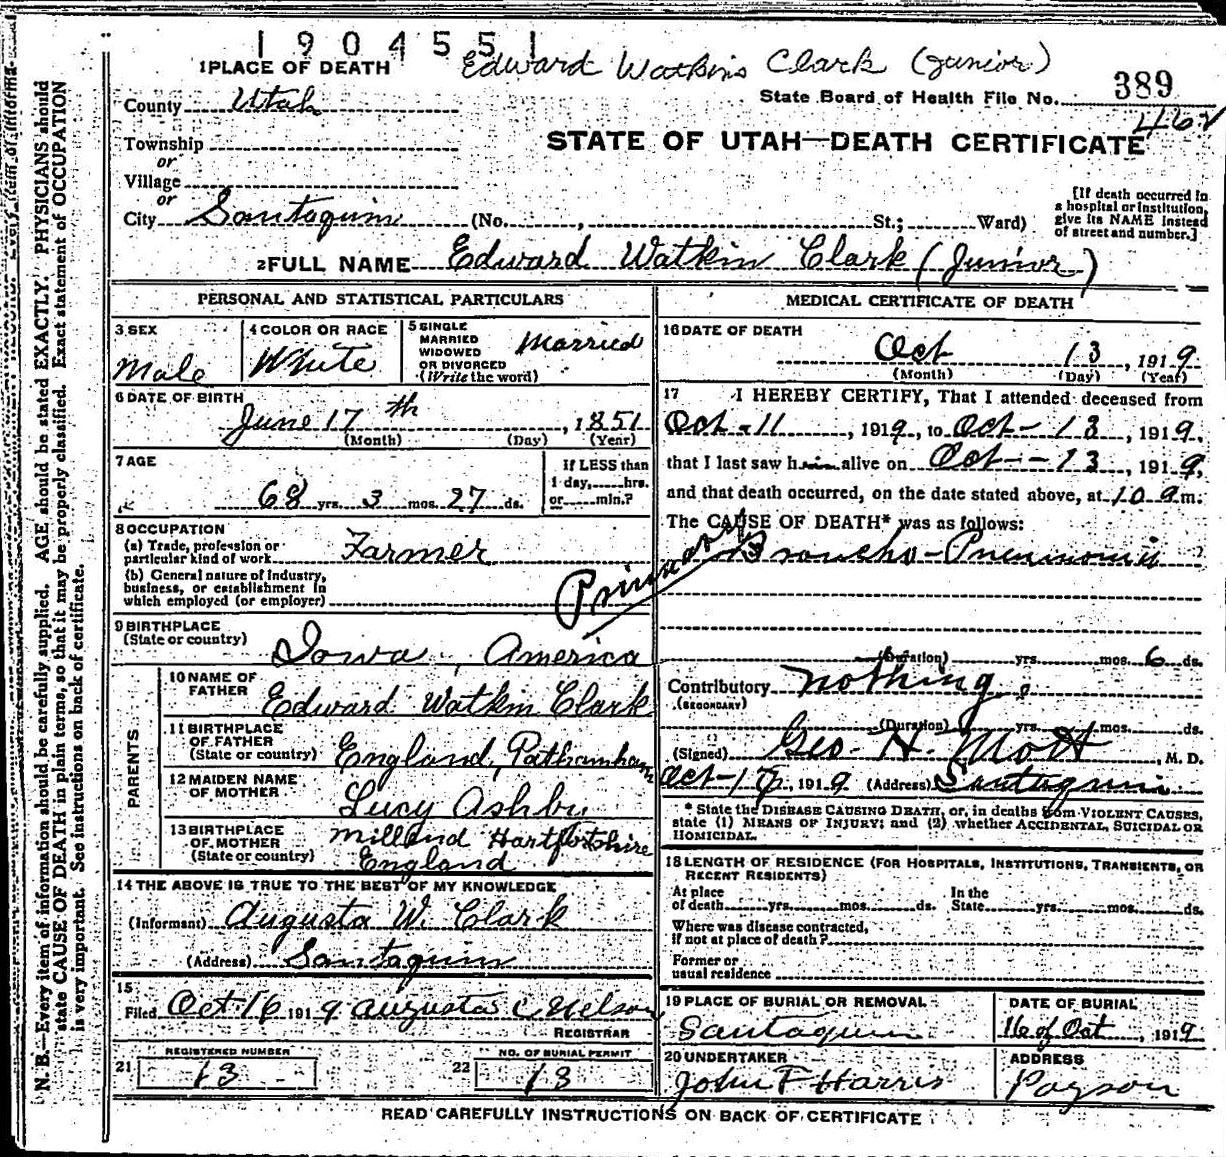 1904551
Edward Watkins Clark (Junior)
1 PLACE OF DEATH
County Utah
State Board of Health File No. 389
462
Township
or
Village
or
STATE OF UTAH—DEATH CERTIFICATE
City Santaquin (No. , St.; Ward)
[If death occurred in
a hospital or institution,
give its NAME instead
of street and number.]
2 FULL NAME Edward Watkin Clark (Junior)
PERSONAL AND STATISTICAL PARTICULARS
3 SEX
Male
4 COLOR OR RACE
White
5 SINGLE
MARRIED
WIDOWED
OR DIVORCED
(Write the word)
Married
6 DATE OF BIRTH
June 17th, 1851
(Month) (Day) (Year)
7 AGE
68 yrs. 3 mos. 27 ds.
If LESS than
1 day, hrs.
or min.?
8 OCCUPATION
(a) Trade, profession or
particular kind of work Farmer
(b) General nature of industry,
business, or establishment in
which employed (or employer)
9 BIRTHPLACE
(State or country) Iowa, America
PARENTS
10 NAME OF
FATHER Edward Watkin Clark
11 BIRTHPLACE
OF FATHER
(State or country) England,
12 MAIDEN NAME
OF MOTHER Lucy Ashby
13 BIRTHPLACE
OF MOTHER
(State or country) Milland Hartfortshire
England
14 THE ABOVE IS TRUE TO THE BEST OF MY KNOWLEDGE
(Informant) Augusta W. Clark
(Address) Santaquin
15
Filed Oct 16 1919 Augusta C Nelson
REGISTRAR
REGISTERED NUMBER
21 13
NO. OF BURIAL PERMIT
22 13
MEDICAL CERTIFICATE OF DEATH
16 DATE OF DEATH
Oct 13, 1919
(Month) (Day) (Year)
17 I HEREBY CERTIFY, That I attended deceased from
Oct-11, 1919, to Oct-13, 1919,
that I last saw him alive on Oct--13, 1919,
and that death occurred, on the date stated above, at 10 a m.
The CAUSE OF DEATH* was as follows:
Primary Broncho-Pneumonia
(Duration) yrs. mos. 6 ds.
Contributory nothing.
(SECONDARY)
(Duration) yrs. mos. ds.
(Signed) Geo. H. Mott, M. D.
Oct- 1919 (Address) Santaquin
* State the DISEASE CAUSING DEATH, or, in deaths from VIOLENT CAUSES,
state (1) MEANS OF INJURY; and (2) whether ACCIDENTAL, SUICIDAL OR
HOMICIDAL.
18 LENGTH OF RESIDENCE (FOR HOSPITALS, INSTITUTIONS, TRANSIENTS, OR
RECENT RESIDENTS)
At place
of death yrs. mos. ds.
In the
State yrs. mos. ds.
Where was disease contracted,
if not at place of death?
Former or
usual residence
19 PLACE OF BURIAL OR REMOVAL
Santaquin
DATE OF BURIAL
16 of Oct, 1919
20 UNDERTAKER
John F Harris
ADDRESS
Payson
READ CAREFULLY INSTRUCTIONS ON BACK OF CERTIFICATE
N. B.—Every item of information should be carefully supplied. AGE should be stated EXACTLY. PHYSICIANS should
state CAUSE OF DEATH in plain terms, so that it may be properly classified. Exact statement of OCCUPATION
is very important. See instructions on back of certificate.